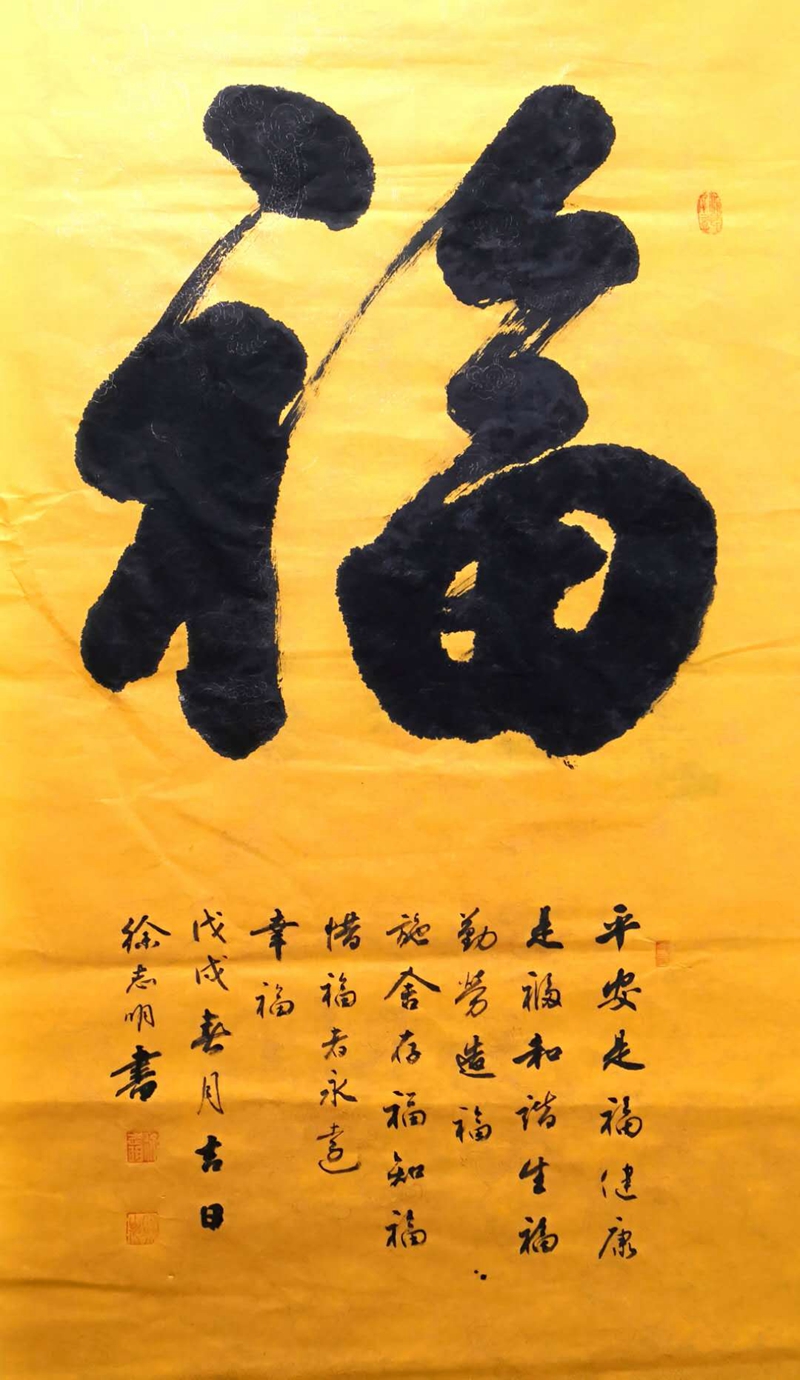 福
平安是福健康
是福和谐生福
勤劳造福
施舍存福知福
惜福者永远
幸福
戊戌春月吉日
徐志明书